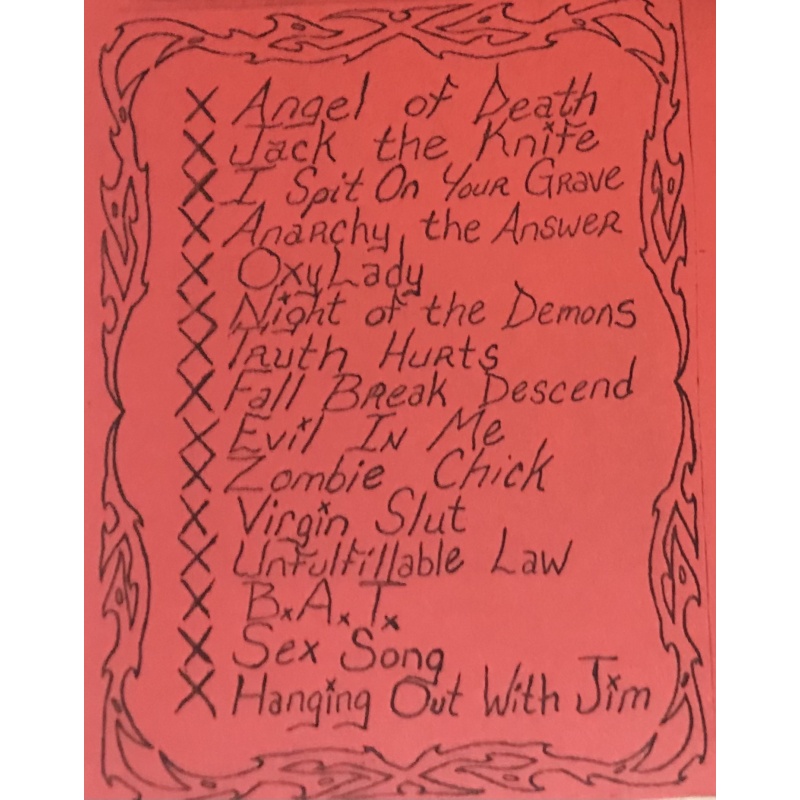 X Angel of Death
X Jack the Knife
X I Spit On Your Grave
X Anarchy, the Answer
X Oxy Lady
X Night of the Demons
X Truth Hurts
X Fall Break Descend
X Evil In Me
X Zombie Chick
X Virgin Slut
X Unfulfillable Law
X B.A.T.
X Sex Song
X Hanging Out With Jim